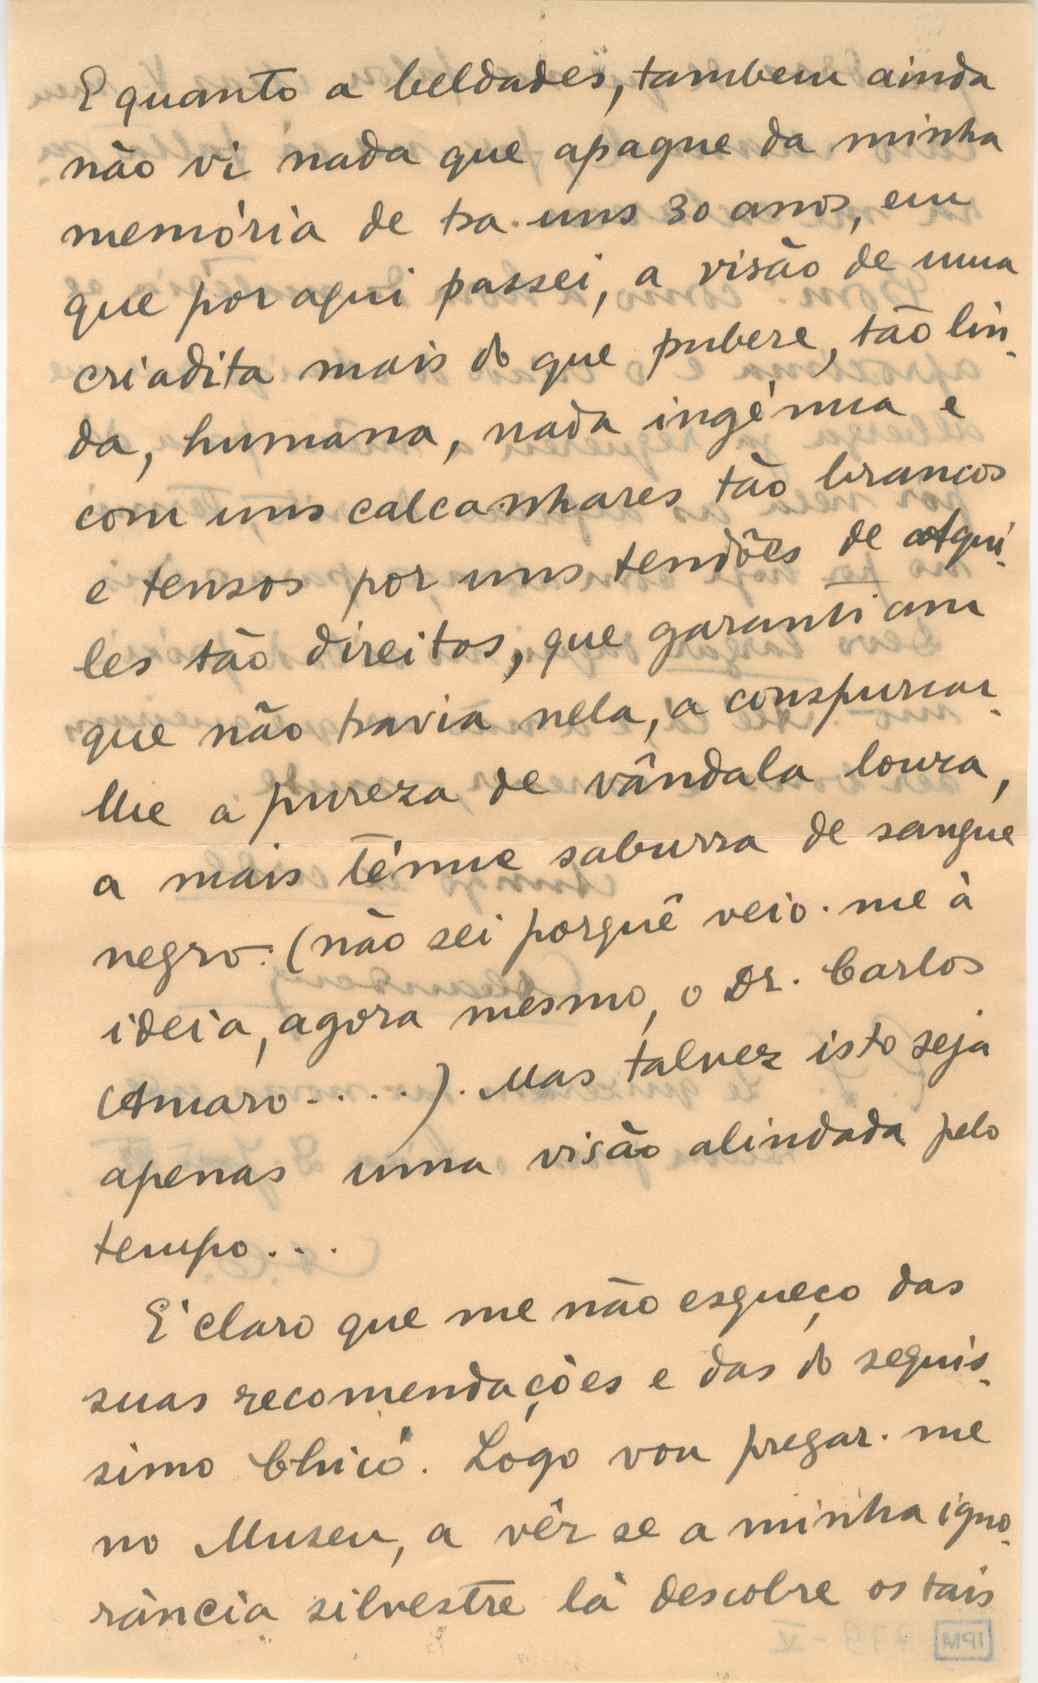 E quanto a beldades, tambem ainda
não vi nada que apague da minha
memória de ha uns 30 anos, em
que por aqui passei, a visão de uma
criadita mais do que pubere, tão lin-
da, humana, nada ingénua e
com uns calcanhares tão brancos
e tensos por uns tendões de Aqui-
les tão direitos, que garantiam
que não havia nela, a conspurcar-
lhe a pureza de vândala loura,
a mais ténue saburra de sangue
negro. (não sei porquê veio-me à
ideia, agora mesmo, o Dr. Carlos
Amaro.....). Mas talvez isto seja
apenas uma visão alindada pelo
tempo...
E' claro que me não esqueço das
suas recomendações e das do seguis-
simo Chicó. Logo vou pregar-me
no Museu, a vêr se a minha igno-
rância silvestre lá descobre os tais
IPM